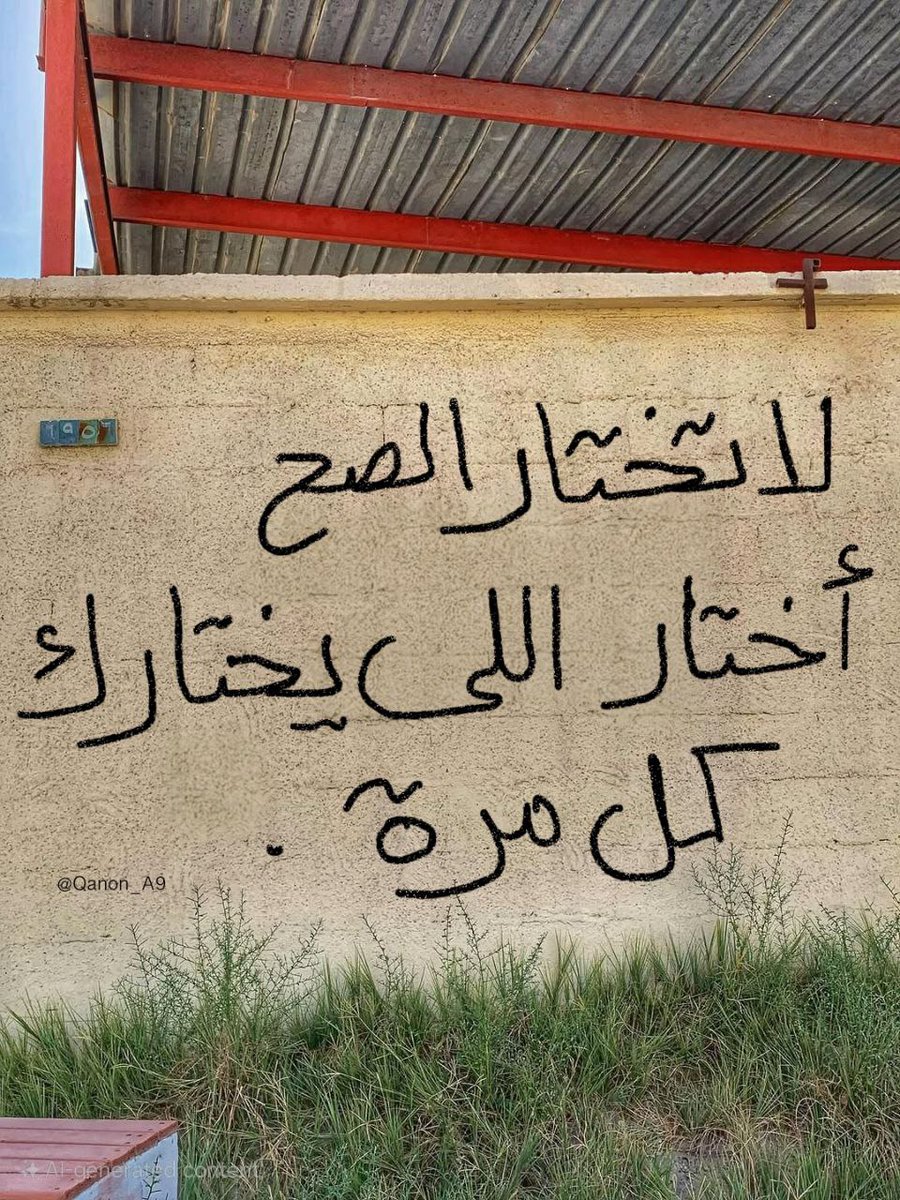 1967
لا تختار الصح
أختار اللي يختارك
كل مرة .
@Qanon_A9
AI-generated content